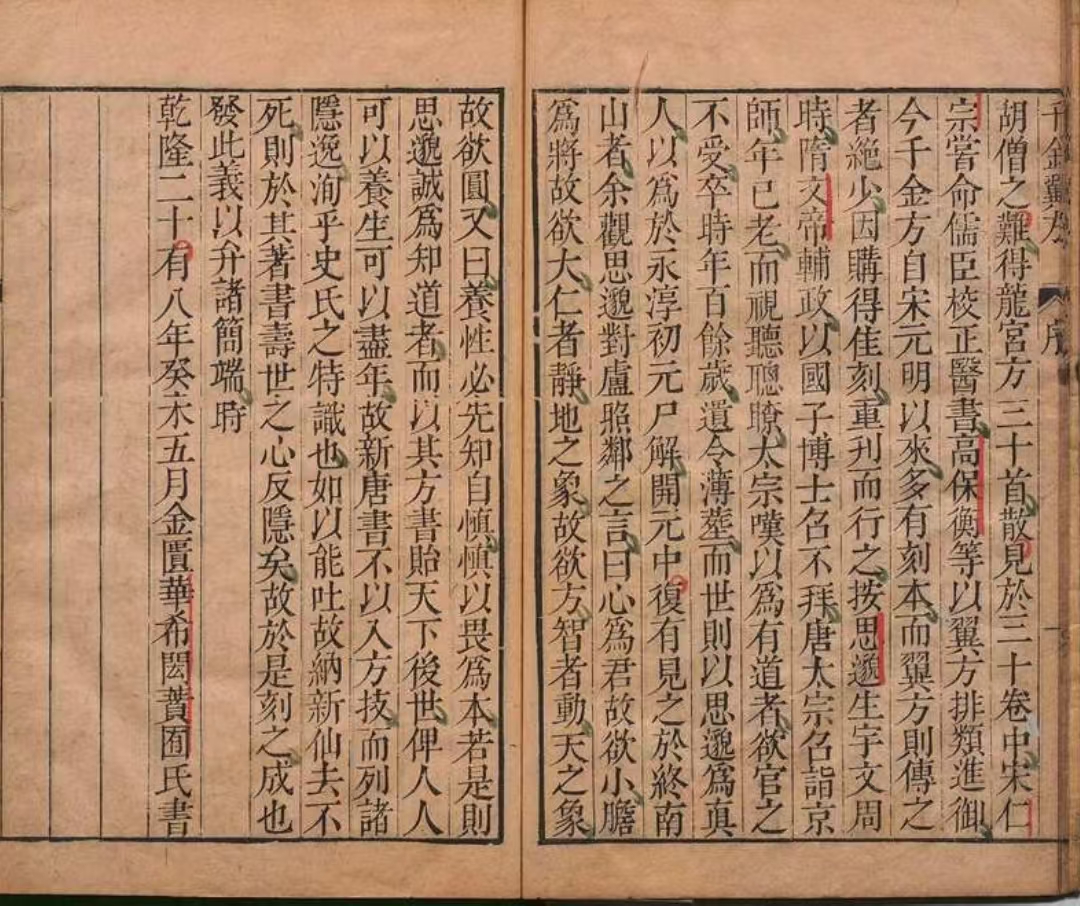 千金翼方 序
胡僧之難得龍宮方三十首散見於三十卷中宋仁
宗嘗命儒臣校正醫書高保衡等以翼方排類進御
今千金方自宋元明以來多有刻本而翼方則傳之
者絶少因購得佳刻重刋而行之按思邈生宇文周
時隋文帝輔政以國子博士召不拜唐太宗召詣京
師年已老而視聽聰瞭太宗嘆以爲有道者欲官之
不受卒時年百餘歲遺令薄塟而世則以思邈爲真
人以爲於永淳初元尸解開元中復有見之於終南
山者余觀思邈對盧照鄰之言曰心爲君故欲小膽
爲將故欲大仁者靜地之象故欲方智者動天之象
故欲圓又曰養性必先知自慎慎以畏爲本若是則
思邈誠爲知道者而以其方書貽天下後世俾人人
可以養生可以盡年故新唐書不以入方技而列諸
隱逸洵乎史氏之特識也如以能吐故納新仙去不
死則於其著書壽世之心反隱矣故於是刻之成也
發此義以弁諸簡端時
乾隆二十有八年癸未五月金匱華希閎蕡囿氏書